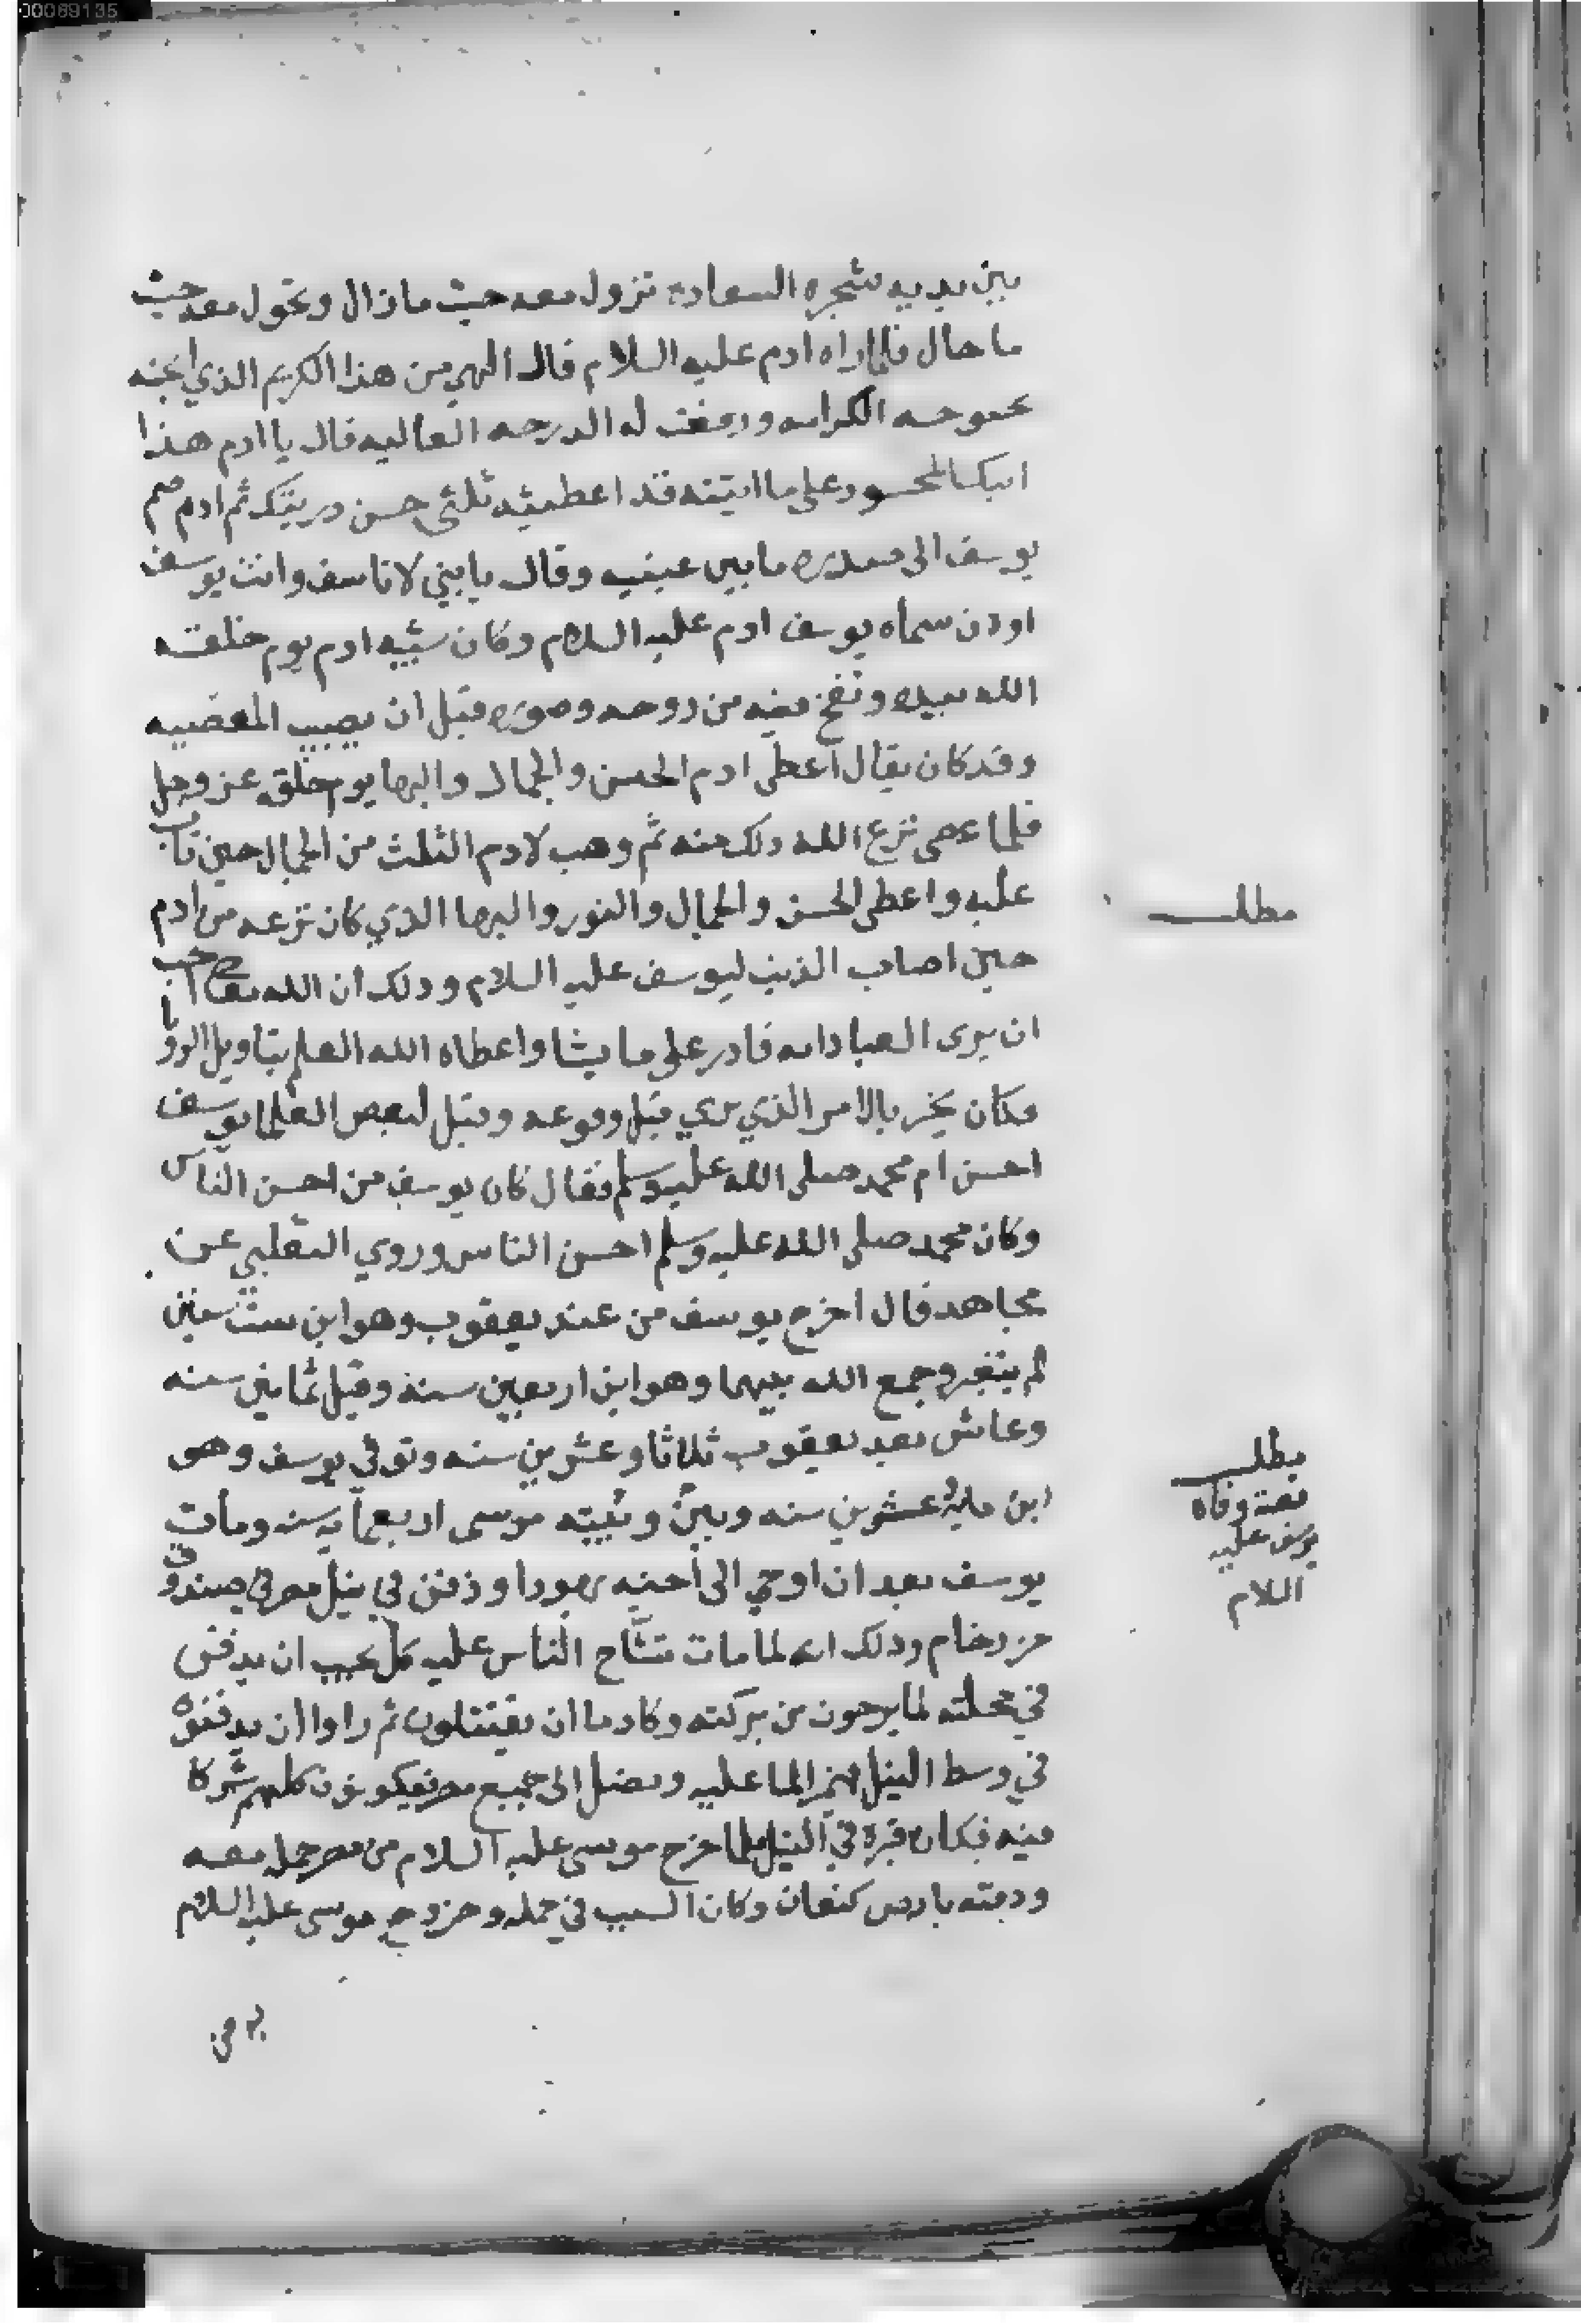 00089135
بين يديه شجره السعاده تزول معه حيث ما زال وتحول معه حيث
ما حال فلما راه ادم عليه السلام قال الهي من هذا الكريم الذي ابحته
بحبوحه الكرامه ورفعت له الدرجه العاليه قال يا ادم هذا
ابنك المحسود على ما اتيته قد اعطيته ثلثي حسن دريتك ثم ادم ضم
يوسف الى صدره ما بين عينيه وقال يا بني لا تاسف وانت يوسف
سماه يوسف ادم عليه السلام وكان شبيه ادم يوم خلقه
الله بيده ونفخ فيه من روحه وصوره قبل ان يصيب المعصيه
وقد كان يقال اعطى ادم الحسن والجمال والبها يوم خلقه عز وجل
فلما عصى نزع الله دلك منه ثم وهب لادم الثلث من الجمال حين تاب
عليه واعطى الحسن والجمال والنور والبها الذي كان نزعه من ادم
مطلب
حين اصاب الذنب ليوسف عليه السلام ودلك ان الله تعا احب
ان يرى العباد انه قادر على ما يشا واعطاه الله العلم بتاويل الرويا
فكان يخبر بالامر الذي يري قبل وقوعه وقيل لبعض العلما يوسف
احسن ام محمد صلى الله عليه وسلم فقال كان يوسف من احسن الناس
وكان محمد صلى الله عليه وسلم احسن الناس وروي الثعلبي عن
مجاهد قال اخرج يوسف من عند يعقوب وهو ابن ست سنين
لم يتغير وجمع الله بينهما وهو ابن اربعين سنة وقيل ثمانين سنه
وعاش بعد يعقوب ثلاثا وعشرين سنه وتوفي يوسف وهو
مطلب
قصة وفاه
يوسف عليه
السلام
ابن مايه عشرين سنه وبين موسى اربعمايه سنه ومات
يوسف بعد ان اوحي الى اخيه يهودا ودفن في نيل مصر في صندوق
من رخام ودلك انه لما مات تشاح الناس عليه كل يحب ان يدفن
في محلته لما يرجون من بركته وكادوا ان يقتتلون ثم راوا ان يدفنوه
في وسط النيل فيمر الما عليه ويصل الى جميع مصر فيكونون كلهم شركا
فيه فكان قبره في النيل فلما خرج موسى عليه السلام من مصر حمله معه
ودفنه بارض كنعان وكان السبب في حمله وخروج موسى عليه السلام